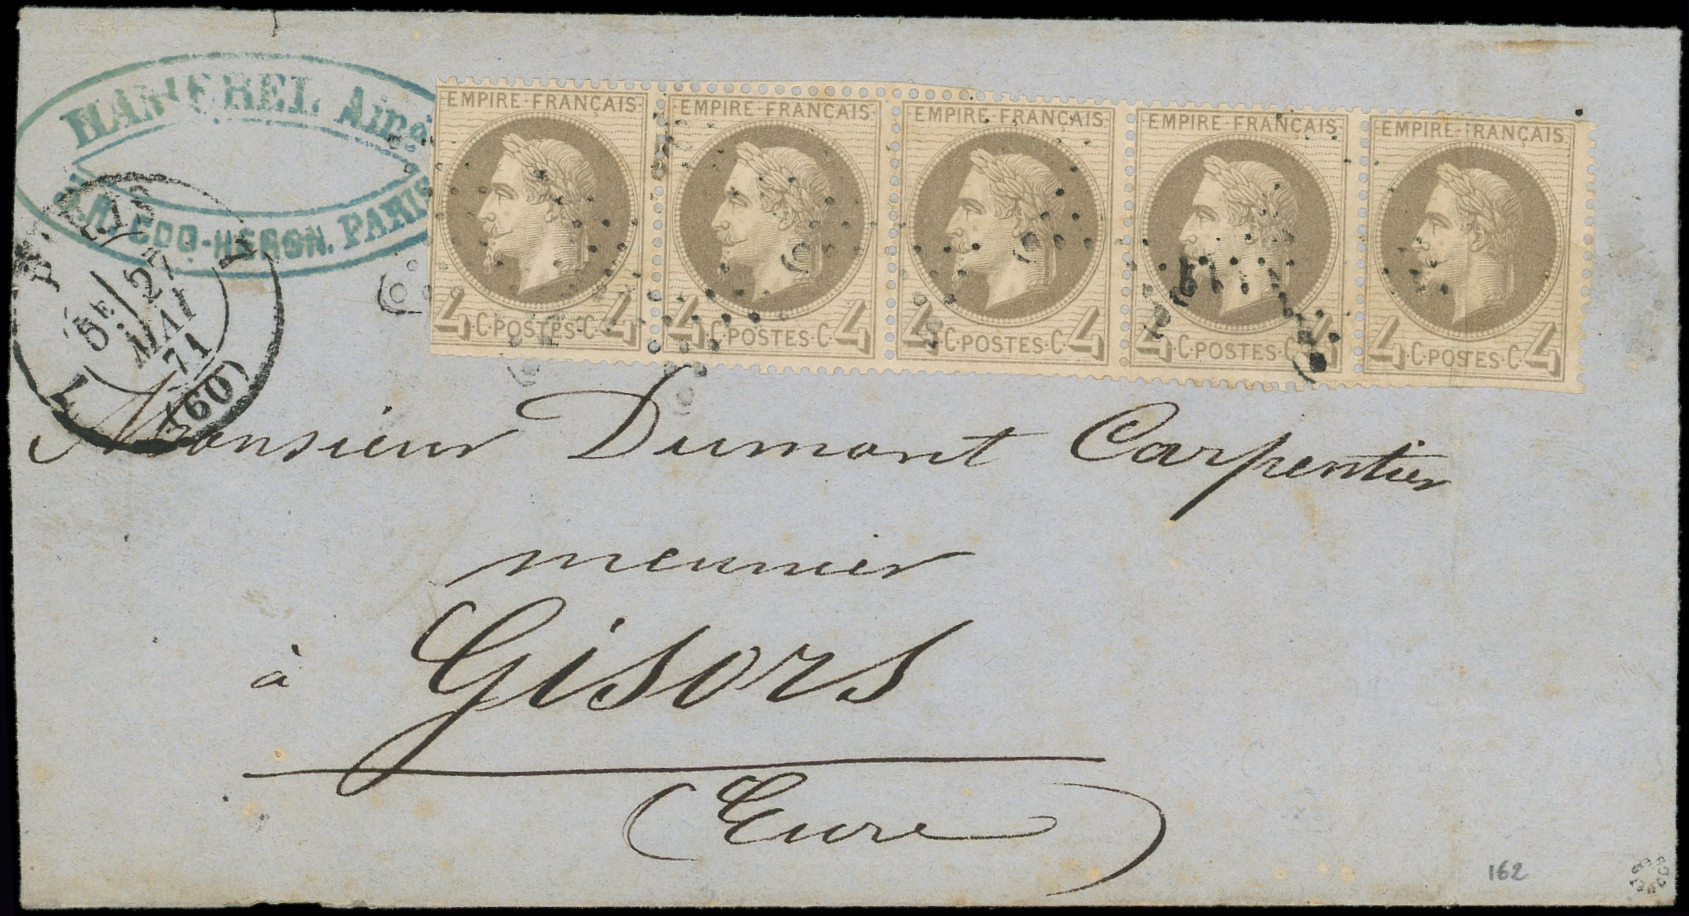 Aîné
PARIS
5E / 27
MAI
71
(60)
EMPIRE·FRANÇAIS
4 C·POSTES·C 4
EMPIRE·FRANÇAIS
4 C·POSTES·C 4
EMPIRE·FRANÇAIS
4 C·POSTES·C 4
EMPIRE·FRANÇAIS
4 C·POSTES·C 4
EMPIRE·FRANÇAIS
4 C·POSTES·C 4
Monsieur Dumont Carpentier
meunier
à Gisors
(Eure)
162